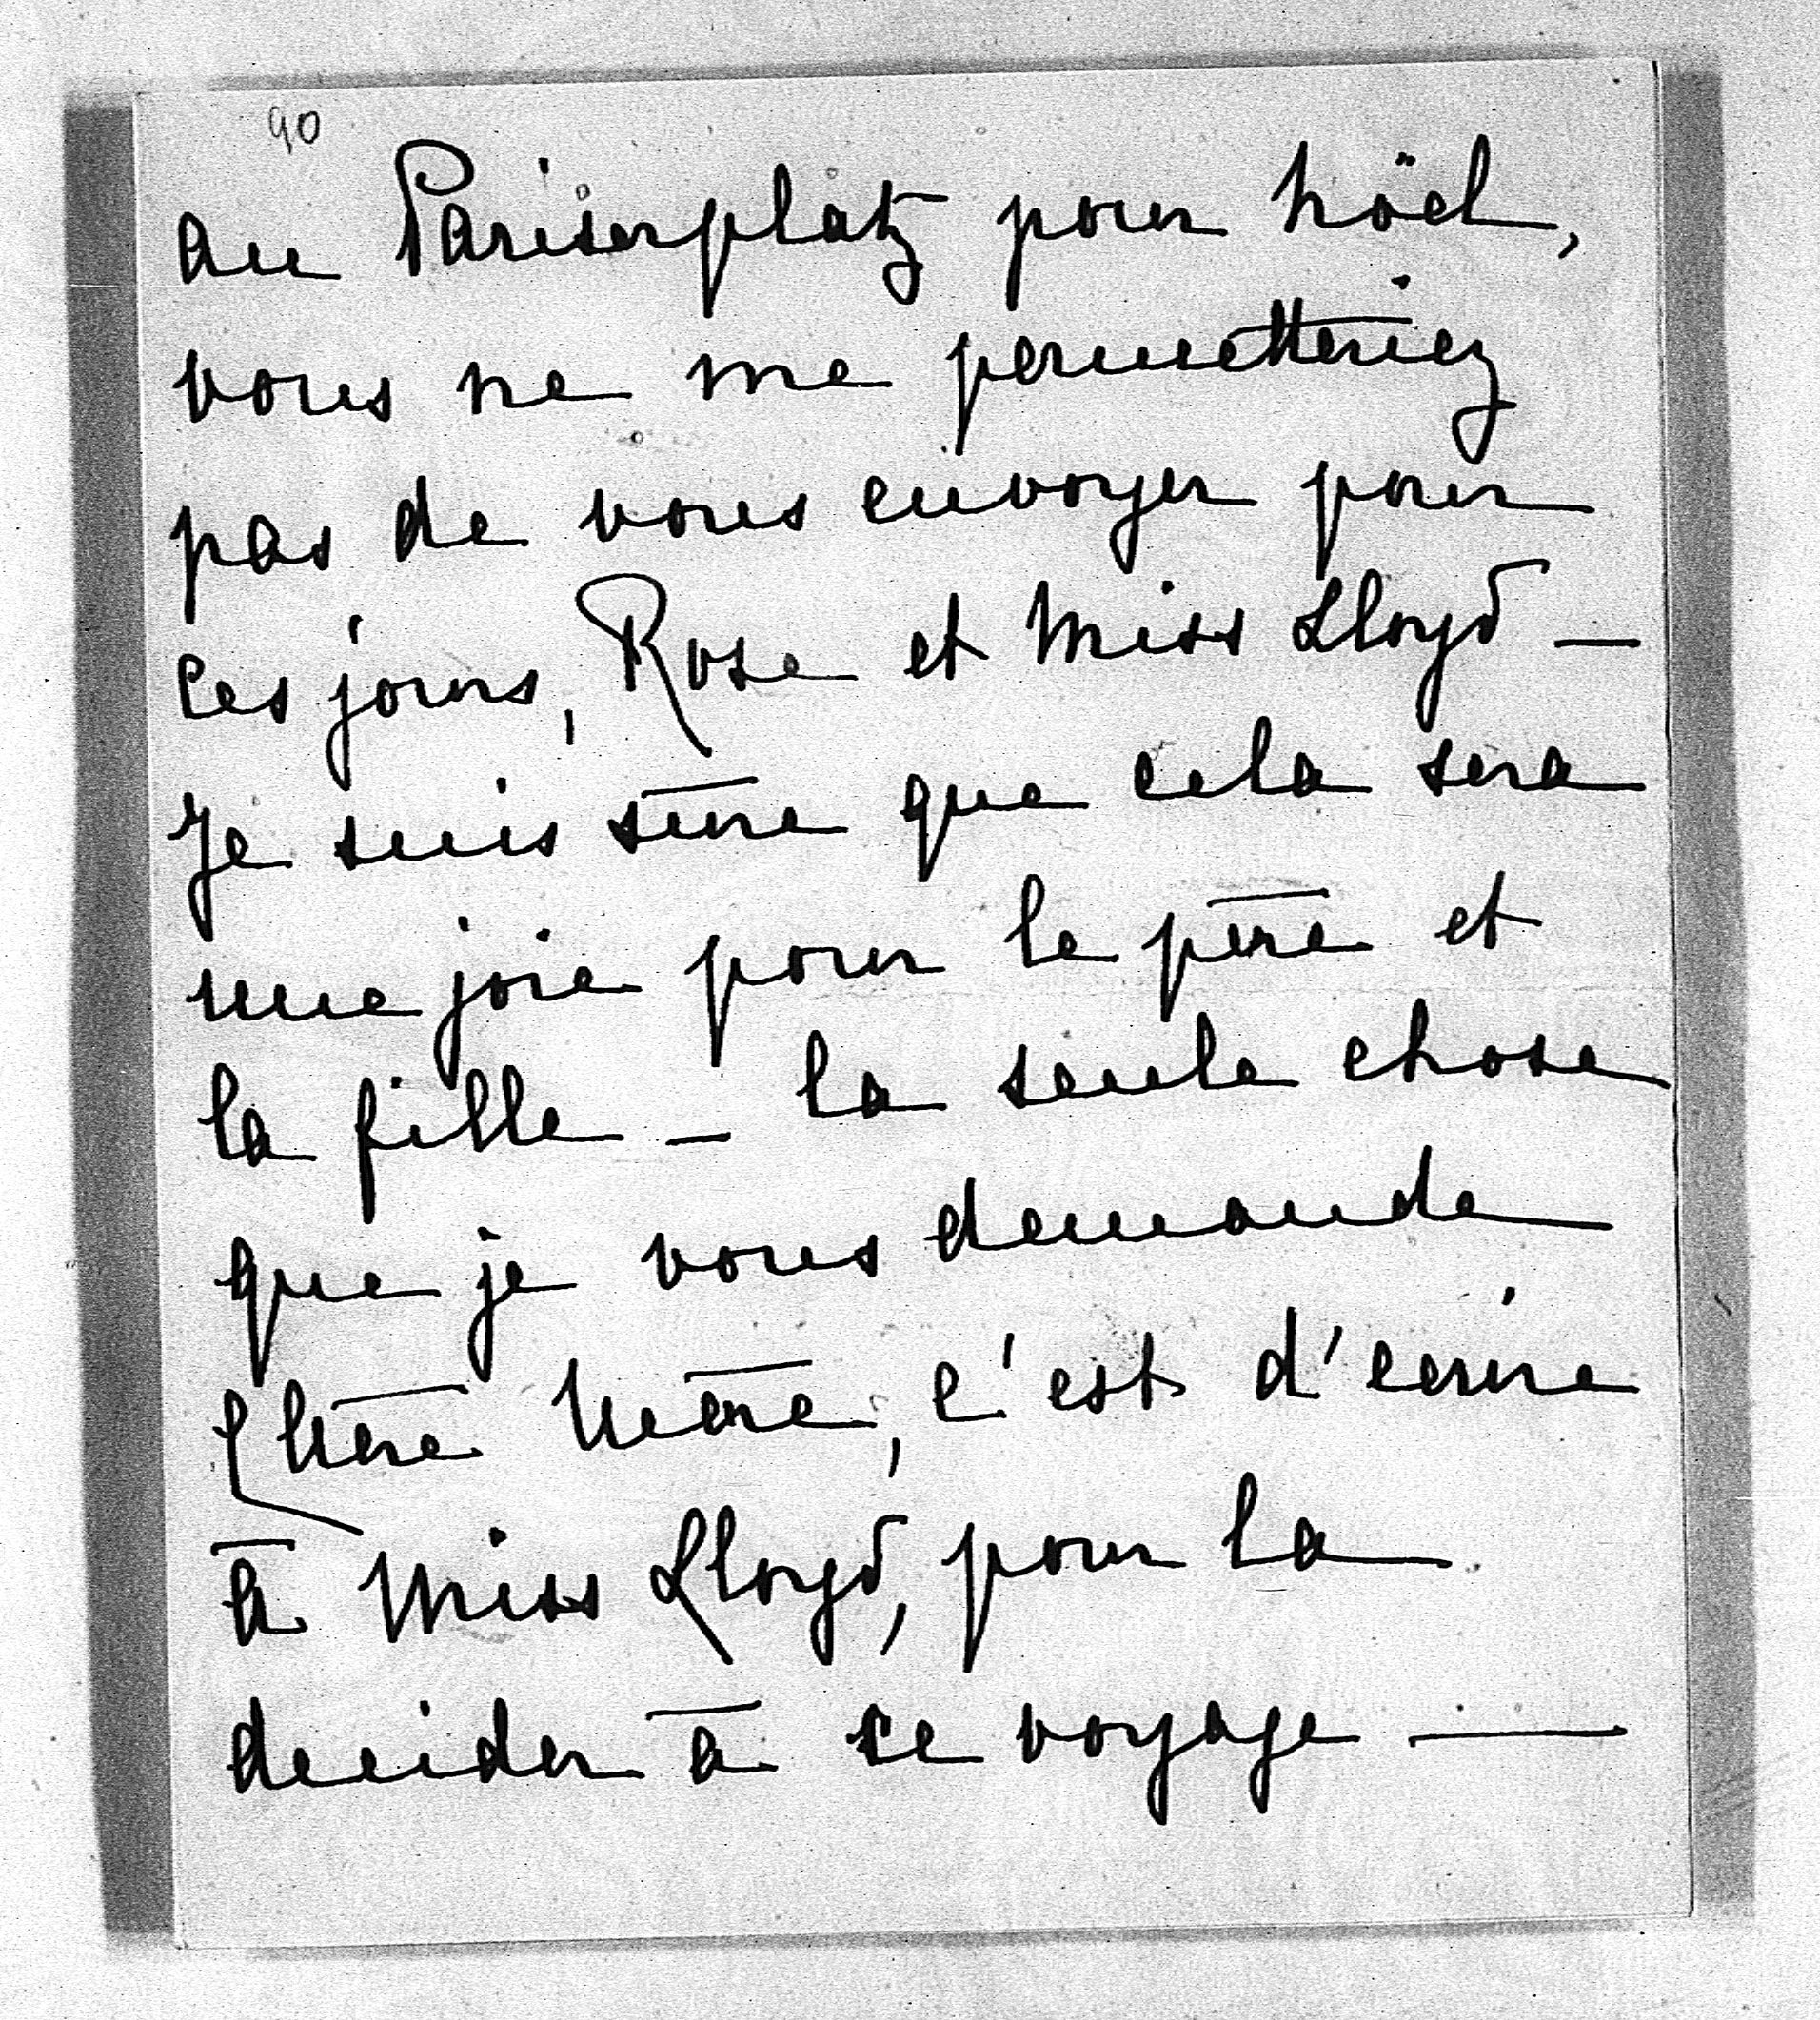 90
au Pariserplatz pour Noël,
vous ne me permetteriez
pas de vous envoyer pour
ces jours, Rose et Miss Lloyd —
Je suis sûre que cela sera
une joie pour le père et
la fille — la seule chose
que je vous demande
Chère Mère, c'est d'ecrire
à Miss Lloyd, pour la
decider à ce voyage —